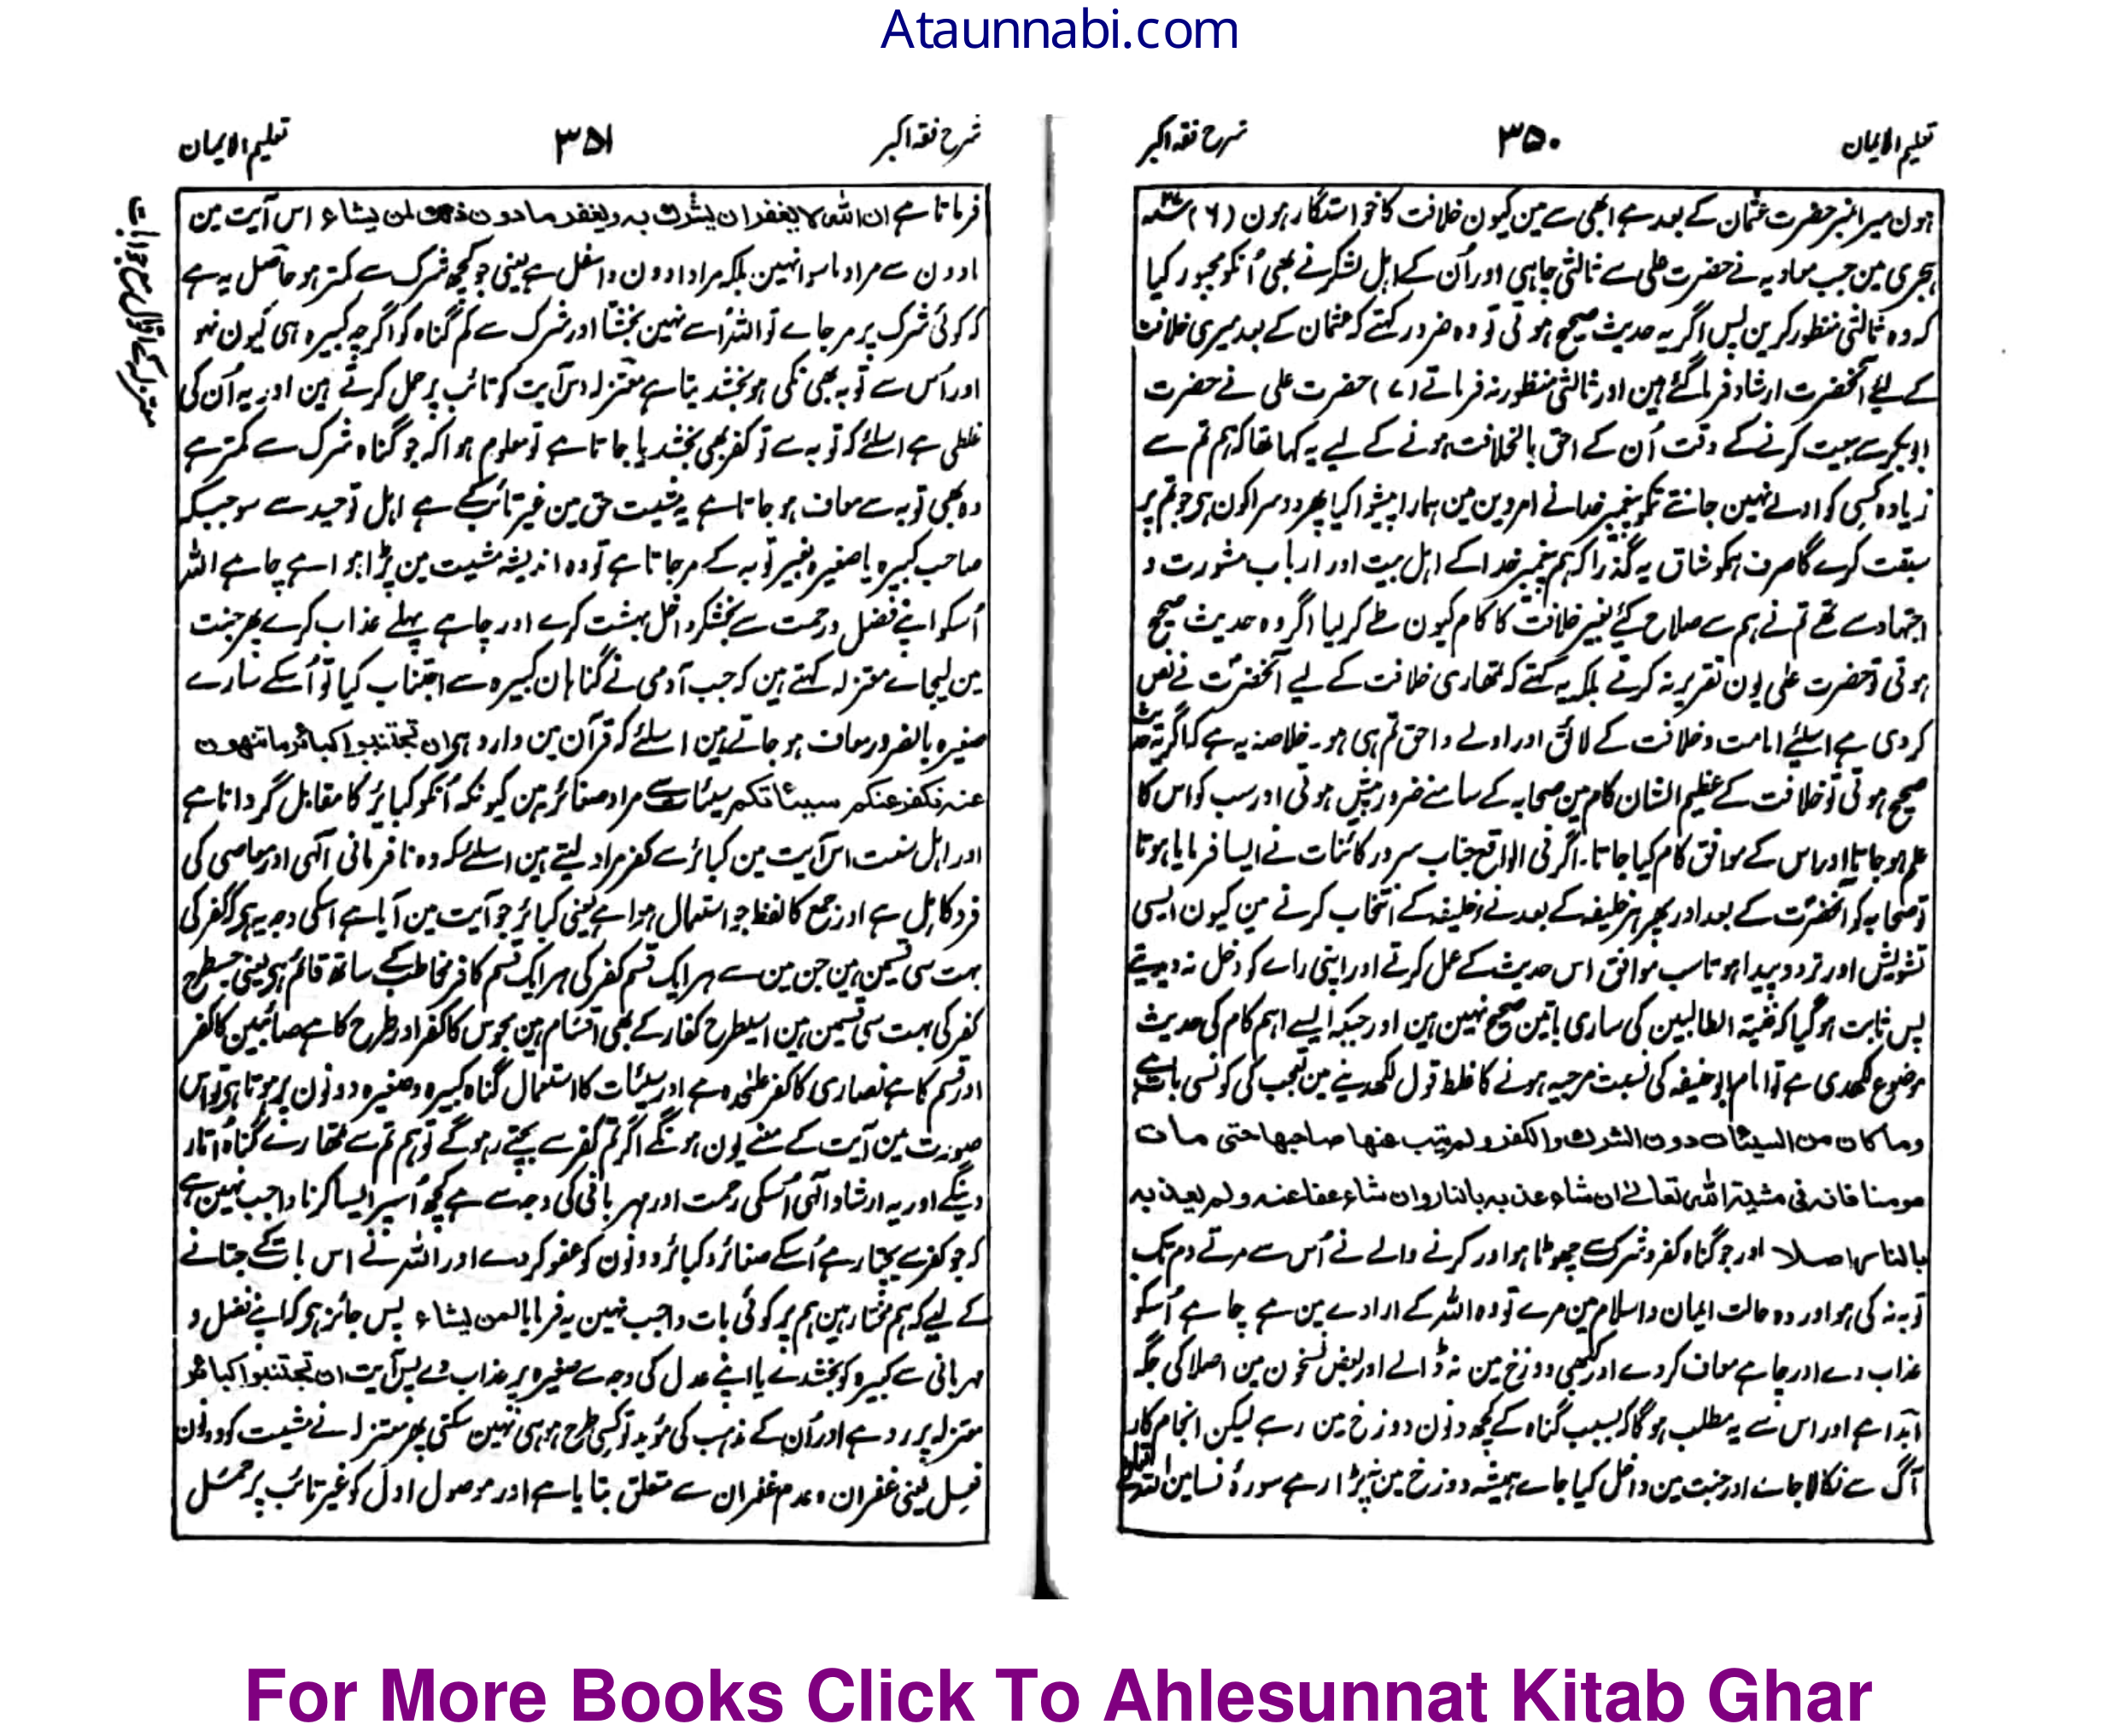 Ataunnabi.com
تعلیم الایمان
۳۵۰
شرح فقہ اکبر
ہون میرا نمبر حضرت عثمان کے بعد ہے ابھی سے مین کیون خلافت کا خواستگار ہون (۶)
ہجری مین جب معاویہ نے حضرت علی سے ثالثی چاہی اور اُن کے اہل لشکر نے بھی اُنکو مجبور کیا
کہ وہ ثالثی منظور کرین پس اگر یہ حدیث صحیح ہوتی تو وہ ضرور کہتے کہ عثمان کے بعد میری خلافت
کے لیے آنحضرت ارشاد فرما گئے ہین اور ثالثی منظور نہ فرماتے (۷) حضرت علی نے حضرت
ابوبکر سے بیعت کرنے کے وقت اُن کے احق بالخلافت ہونے کے لیے یہ کہا تھا کہ ہم تم سے
زیادہ کسی کو اولے نہین جانتے تمکو پیغمبر خدا نے امر دین مین ہمارا پیشوا کیا پھر دوسرا کون ہی جو تم پر
سبقت کرے گا صرف ہمکو شاق یہ گذرا کہ ہم پیغمبر خدا کے اہل بیت اور ارباب مشورت و
اجتہاد سے تھے تم نے ہم سے صلاح کیے بغیر خلافت کا کام کیون طے کر لیا اگر وہ حدیث صحیح
ہوتی تو حضرت علی یون تقریر نہ کرتے بلکہ یہ کہتے کہ تمھاری خلافت کے لیے آنحضرت نے نص
کر دی ہے اسلیے امامت و خلافت کے لائق اور اولے و احق تم ہی ہو۔ خلاصہ یہ ہے کہ اگر یہ حدیث
صحیح ہوتی تو خلافت کے عظیم الشان کام مین صحابہ کے سامنے ضرور پیش ہوتی اور سب کو اس کا
علم ہو جاتا اور اس کے موافق کام کیا جاتا۔ اگر فی الواقع جناب سرور کائنات نے ایسا فرمایا ہوتا
تو صحابہ کو آنحضرت کے بعد اور پھر ہر خلیفہ کے بعد نے خلیفہ کے انتخاب کرنے مین کیون ایسی
تشویش اور تردد پیدا ہوتا سب موافق اس حدیث کے عمل کرتے اور اپنی راے کو دخل نہ دیتے
پس ثابت ہو گیا کہ غنیۃ الطالبین کی ساری باتین صحیح نہین ہین اور جبکہ ایسے اہم کام کی حدیث
موضوع لکھدی ہے تو امام ابو حنیفہ کی نسبت مرجیہ ہونے کا غلط قول لکھدینے مین تعجب کی کونسی بات ہے
وما کان من السیئات دون الشرک والکفر ولم یتب عنہا صاحبہا حتی مات
مومنا فانہ فی مشیۃ اللہ تعالے ان شاء عذبہ بالنار وان شاء عفا عنہ ولم یعذبہ
بالنار اصلا اور جو گناہ کفر و شرک سے چھوٹا ہو اور کرنے والے نے اُس سے مرتے دم تک
توبہ نہ کی ہو اور وہ حالت ایمان و اسلام مین مرے تو وہ اللہ کے ارادے مین ہے چاہے اُسکو
عذاب دے اور چاہے معاف کر دے اور کبھی دوزخ مین نہ ڈالے اور بعض نسخون مین اصلا کی جگہ
ابدا ہے اور اس سے یہ مطلب ہوگا کہ بسبب گناہ کے کچھ دنون دوزخ مین رہے لیکن انجام کار
آگ سے نکالا جائے اور جنت مین داخل کیا جاے ہمیشہ دوزخ مین نہ پڑا رہے سورۂ نسا مین اللہ تعالی
شرح فقہ اکبر
۳۵۱
تعلیم الایمان
فرماتا ہے ان اللہ لا یغفر ان یشرک بہ ویغفر ما دون ذلک لمن یشاء اس آیت مین
مادون سے مراد ماسوا نہین بلکہ مراد ادون و اسفل ہے یعنی جو کچھ شرک سے کمتر ہو حاصل یہ ہے
کہ کوئی شرک پر مر جاے تو اللہ اُسے نہین بخشتا اور شرک سے کم گناہ کو اگرچہ کبیرہ ہی کیون نہو
اور اُس سے توبہ بھی نکی ہو بخشدیتا ہے معتزلہ اس آیت کو تائب پر حمل کرتے ہین اور یہ اُن کی
غلطی ہے اسلئے کہ توبہ سے تو کفر بھی بخشدیا جاتا ہے تو معلوم ہوا کہ جو گناہ شرک سے کمتر ہے
وہ بھی توبہ سے معاف ہو جاتا ہے یہ مشیت حق مین غیر تائب کے ہے اہل توحید سے سو جبکہ
صاحب کبیرہ یا صغیرہ بغیر توبہ کے مر جاتا ہے تو وہ اندیشہ مشیت مین پڑا ہوا ہے چاہے اللہ
اُسکو اپنے فضل و رحمت سے بخشکر داخل بہشت کرے اور چاہے پہلے عذاب کرے پھر جنت
مین لیجاے معتزلہ کہتے ہین کہ جب آدمی نے گناہان کبیرہ سے اجتناب کیا تو اُسکے سارے
صغیرہ بالضرور معاف ہو جاتے ہین اسلئے کہ قرآن مین وارد ہی ان تجتنبوا کبائر ما تنہون
عنہ نکفر عنکم سیئاتکم سیئات سے مراد صغائر ہین کیونکہ اُنکو کبائر کا مقابل گردانا ہے
اور اہل سنت اس آیت مین کبائر سے کفر مراد لیتے ہین اسلئے کہ وہ نافرمانی الٰہی اور معاصی کی
فرد کامل ہے اور جمع کا لفظ جو استعمال ہوا ہے یعنی کبائر جو آیت مین آیا ہے اسکی وجہ یہ ہی کہ کفر کی
بہت سی قسمین ہین جن مین سے ہر ایک قسم کفر کی ہر ایک قسم کافر مخاطب کے ساتھ قائم ہی یعنی جسطرح
کفر کی بہت سی قسمین ہین اسیطرح کفار کے بھی اقسام ہین مجوس کا کفر اور طرح کا ہے صائبین کا کفر
اور قسم کا ہے نصاری کا کفر علیحدہ ہے اور سیئات کا استعمال گناہ کبیرہ و صغیرہ دونون پر ہوتا ہی تو اس
صورت مین آیت کے معنے یون ہونگے اگر تم کفر سے بچتے رہوگے تو ہم تم سے تمھارے گناہ اُتار
دینگے اور یہ ارشاد الٰہی اُسکی رحمت اور مہربانی کی وجہ سے ہے کچھ اُسپر ایسا کرنا واجب نہین ہے
کہ جو کفر سے بچتا رہے اُسکے صغائر و کبائر دونون کو عفو کر دے اور اللہ نے اس بات کے جتانے
کے لیے کہ ہم مختار ہین ہم پر کوئی بات واجب نہین یہ فرمایا لمن یشاء پس جائز ہی کہ اپنے فضل و
مہربانی سے کبیرہ کو بخشدے یا اپنے عدل کی وجہ سے صغیرہ پر عذاب دے پس آیت ان تجتنبوا کبائر
معتزلہ پر رد ہے اور اُن کے مذہب کی مؤید تو کسی طرح ہو ہی نہین سکتی پھر معتزلہ نے مشیت کو دونون
فعل یعنی غفران و عدم غفران سے متعلق بتایا ہے اور موصول اول کو غیر تائب پر حمل
معتزلہ کے اقوال مع جوابات
For More Books Click To Ahlesunnat Kitab Ghar